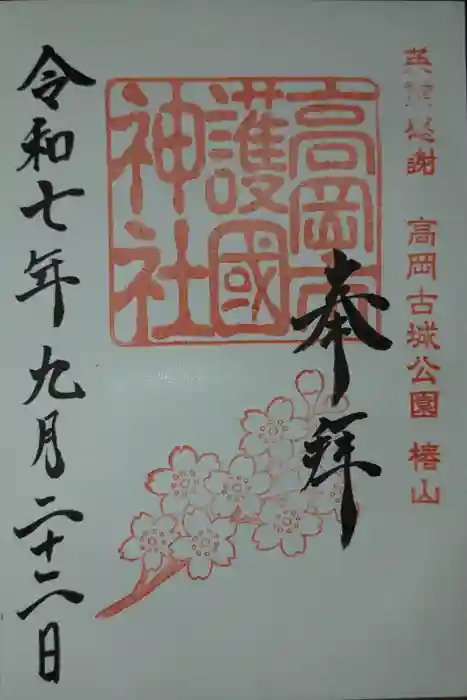 英霊感謝 高岡古城公園 椿山
高岡市
護國
神社
奉拜
令和七年九月二十二日